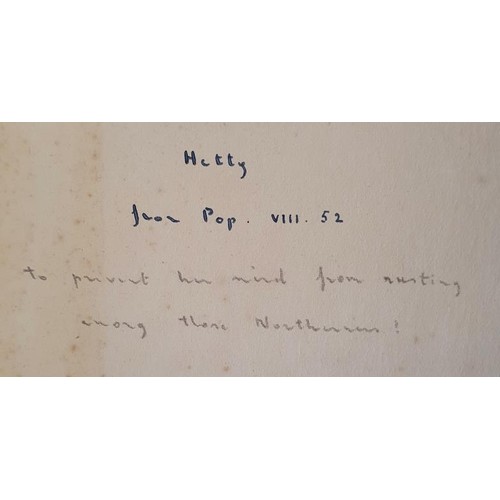 Hetty
from Pop. VIII. 52
to prevent her mind from rusting
among those Northerners!